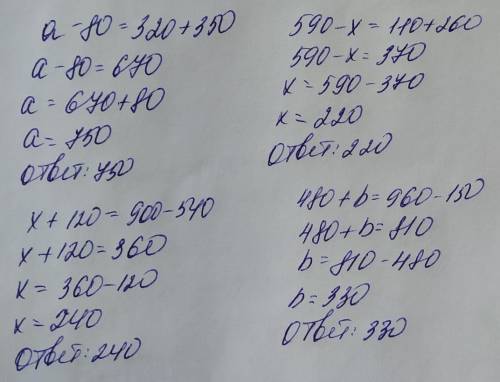 a - 80 = 320 + 350
a - 80 = 670
a = 670 + 80
a = 750
ответ: 750
x + 120 = 900 - 540
x + 120 = 360
x = 360 - 120
x = 240
ответ: 240
590 - x = 110 + 260
590 - x = 370
x = 590 - 370
x = 220
ответ: 220
480 + b = 960 - 150
480 + b = 810
b = 810 - 480
b = 330
ответ: 330